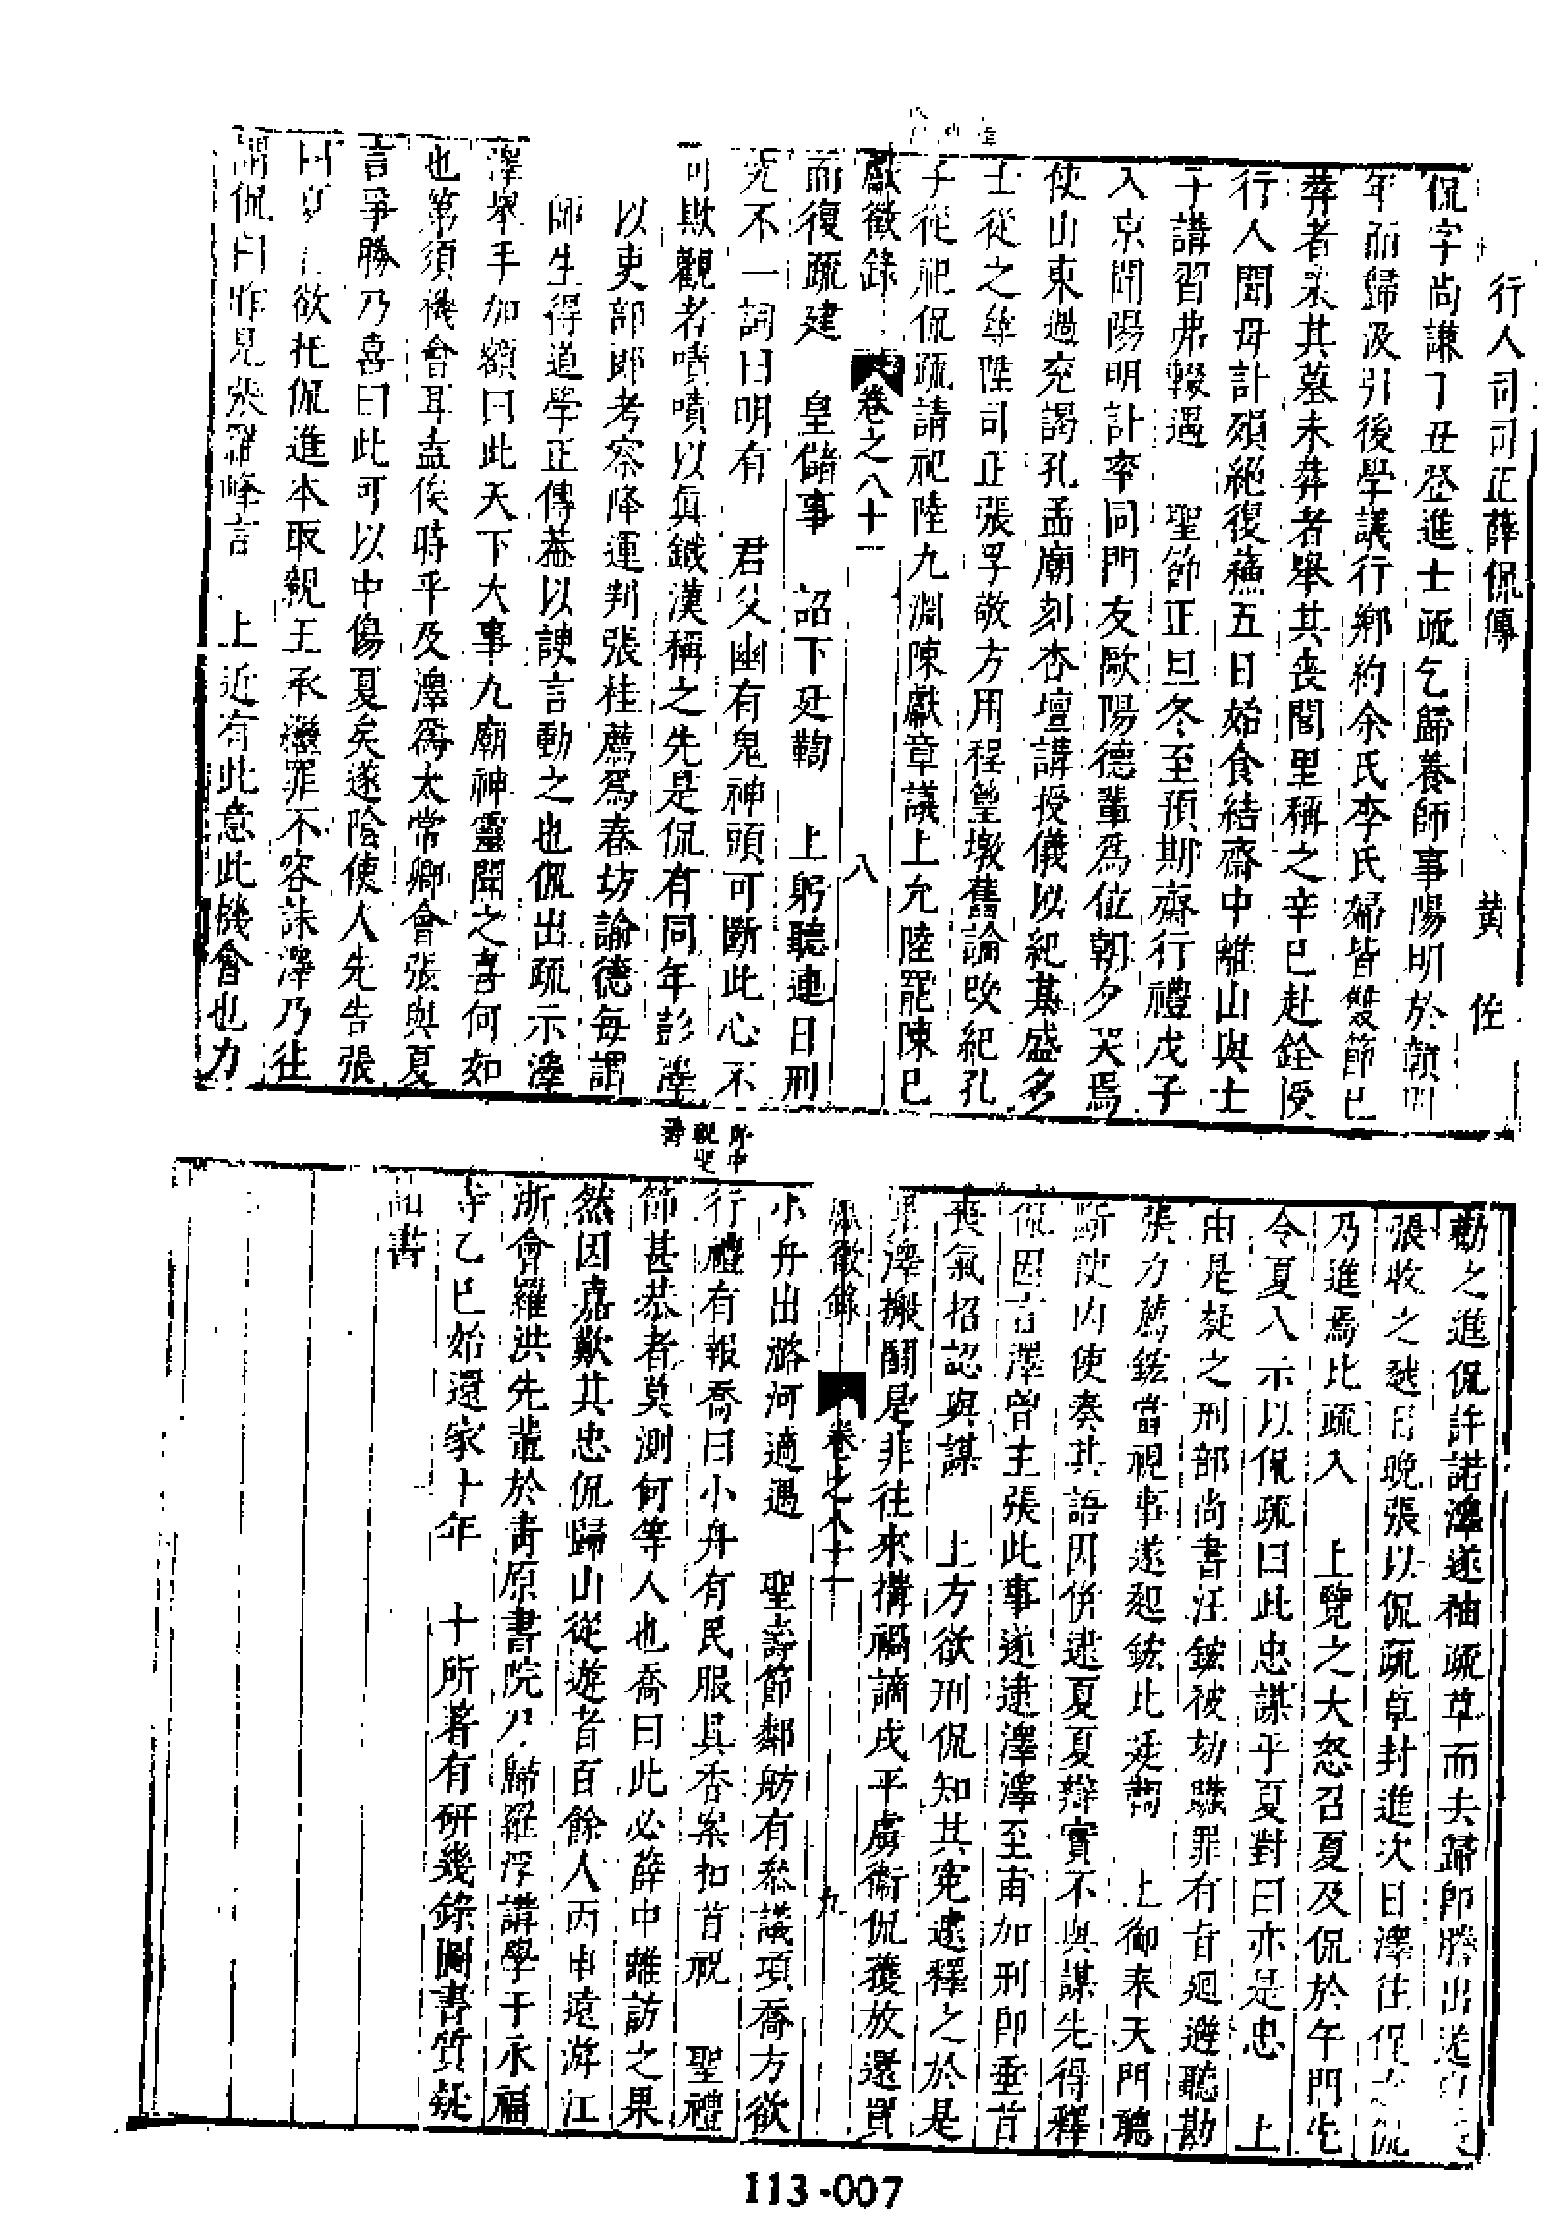 行人司司正薛侃傳　黄佐
侃字尚謙丁丑登進士疏乞歸養師事陽明於贑
年而歸汲引後學議行鄉約余氏李氏婦皆雙節已
葬者表其墓未葬者舉其喪閭里稱之辛巳赴銓授
行人聞母計殞絕復蘓五日始食結齋中離山與士
子講習弗輟遇　聖節正旦冬至預期齋行禮戊子
入京聞陽明計率同門友歐陽德輩爲位朝夕哭焉
使山東過兖謁孔孟廟刻杏壇講授儀以紀其盛多
士從之陞司正張孚敬方用程篁墩舊論改祀孔
子從祀侃疏請祀陸九淵陳獻章議上允陸罷陳已
獻徵錄　卷之八十一　八
而復疏建　皇儲事　詔下廷鞫　上躬聽連日刑
究不一詞曰明有　君父幽有鬼神頭可斷此心不
可欺觀者嘖嘖以眞鐵漢稱之先是侃有同年彭澤
以吏部郎考察降運判張桂薦爲春坊諭德每謂
師生得道學正傳葢以諛言動之也侃出疏示澤
澤舉手加額曰此天下大事九廟神靈聞之喜何如
也第須機會耳葢俟時平及澤爲太常卿會張與夏
言爭勝乃喜曰此可以中傷夏矣遂陰使人先告張
曰夏言欲托侃進本取親王承繼罪不容誅澤乃往
謂侃曰昨見張羅峰言　上近有此意此機會也力
勸之進侃許諾澤遂袖疏草而去歸卽謄出送
張收之越日晚張以侃疏草封進次日澤往促之侃
乃進焉比疏入　上覽之大怒召夏及侃於午門先
令夏入示以侃疏曰此忠謀乎夏對曰亦是忠　上
由是疑之刑部尚書汪鋐被劾賺罪有旨廻避聽勘
張力薦鋐當視事遂起鋐比廷鞫　上御奉天門聽
斷使內使奏其語因併逮夏夏辯實不與謀先得釋
侃因言澤曾主張此事遂逮澤澤至甫加刑卽垂首
喪氣招認與謀　上方欲刑侃知其寃遽釋之於是
罪澤搬鬪是非往來搆禍謫戍平虜衞侃獲放還買
獻徵錄　卷之八十一　九
小舟出潞河適遇　聖壽節鄰舫有叅議項喬方欲
行禮有報喬曰小舟有民服具香案扣首祝　聖禮
節甚恭者莫測何等人也喬曰此必薛中離訪之果
然因嘉歎其忠侃歸山從遊者百餘人丙申遠游江
浙會羅洪先輩於靑原書院乃歸羅浮講學于永福
寺乙巳始還家十年　十所著有研幾錄圖書質疑
書
113-007